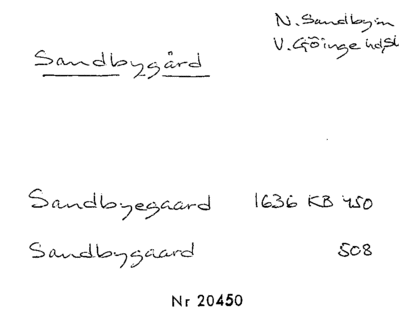 N. Sandbysn
V. Göinge hdsk
Sandbygård
Sandbyegaard 1636 KB 450
Sandbygaard 508
Nr 20450